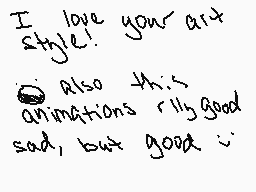 I love your art
style!
also this
animations rlly good
sad, but good :)